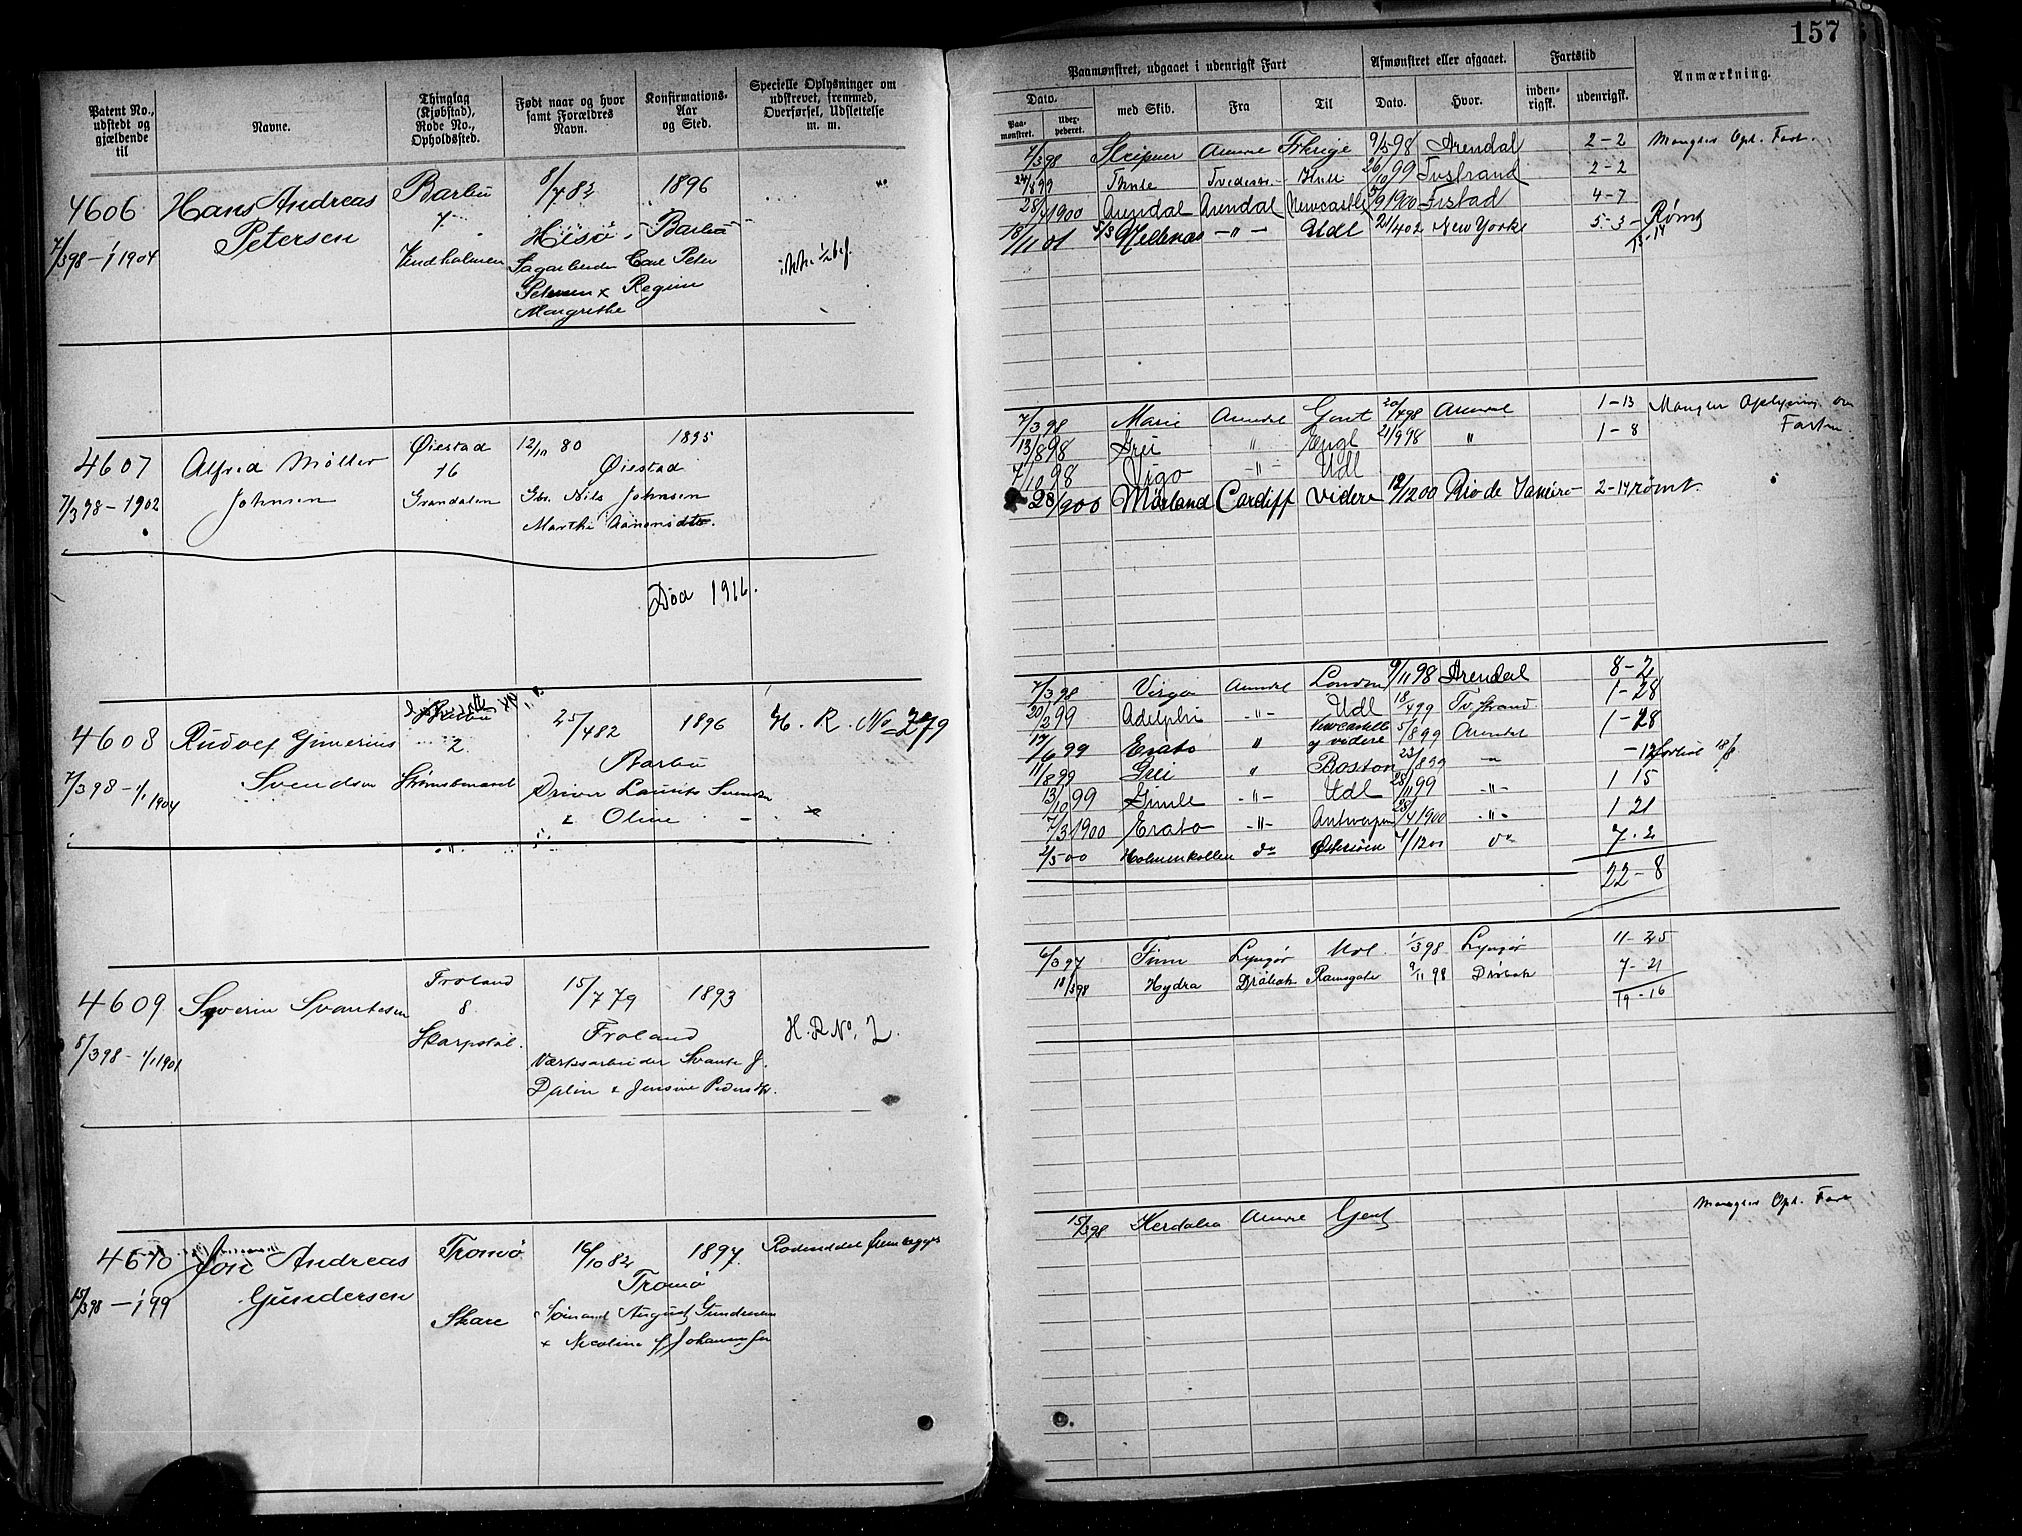 157
Patent No., udstedt og gjældende til
Navne.
Thinglag (Kjøbstad), Rode No., Opholdssted.
Født naar og hvor samt Forældres Navn.
Konfirmations-Aar og Sted.
Specielle Oplysninger om udskrevet, fremmed, Overførsel, Udslettelse m. m.
Paamønstret, udgaaet i udenrigsk Fart
Afmønstret eller afgaaet.
Fartstid
Anmærkning.
Dato.
med Skib.
Fra
Til
Dato.
Hvor.
inden-rigsk.
udenrigsk.
Paa-mønstret.
4606 Hans Andreas Barbu 8/7 82 1896
Petersen 7.
7/3 98 – 1/1 1904 Hisø - Barbu
Carl Peter
Petersen & Regine
Margrethe
7/3 98 Sleipner 9/5 98 Arendal 2-2 Mangler Opl. Fart.
24/8 99 Thule Tvedestr. Hull 26/10 99 Tvstrand 2-2
28/4 1900 Arendal Arendal Newcastle 1900 4-7
18/11 01 -"- Udl 2/4 02 New York 5-3 Rømt
13-14
4607 Alfred Møller Øiestad 12/10 80 1895
Johnsen 16 Øiestad
7/3 98 – 1902 Gbr. Nils Johnsen
Marthe
Død 1916.
7/3 98 Marie Arendal Gent 20/4 98 Arendal 1-13 Mangler Oplysning om
13/8 98 Grei " Engl 21/9 98 " 1-8 Farten
7/10 98 Vigo -"- Udl
28/ 900 Mørland Cardiff videre 12/12 00 Rio de Janeiro 2-14 rømt.
4608 Rudolf Gunerius 2. 25/4 82 1896 H. R. No 279
Svendsen Strømsbuneset Barbu
7/3 98 – 1/1 1904 Laurits Svendsen
& Oline
7/3 98 Virgo Arendal London 9/11 98 Arendal 8-2
20/2 99 Adelphi -"- Udl 18/4 99 Tv.strand 1-28
17/6 99 Erato " Newcastle
og videre 5/8 99 Arendal 1-28
11/8 99 Grei " Boston 23/8 99 -"- -12
13/10 99 Gimle -"- Udl 28/11 99 -"- 1 15
7/3 1900 Erato -"- Antwerpen 28/4 1900 -"- 1 21
2/5 00 Holmenkollen do Østersøen 4/12 00 do 7-2
22-8
4609 Severin Svantesen Froland 15/7 79 1893
8. Froland H. R No. 2.
8/3 98 – 1/1 1901 Værksarbeider Svante J.
Dalin & Jensine Pedersdtr.
6/3 97 Finn Lyngør Udl. 1/3 98 Lyngør 11-25
18/3 98 Hydra Drøbak Ramsgate 9/11 98 Drøbak 7-21
19-16
4610 Andreas Tromø 16/10 82 1897.
Gundersen Tromø
15/3 98 – 1/1 99 Skare August Gundersen
& Nicoline
15/3 98 Gent Mangler Opl. Fart